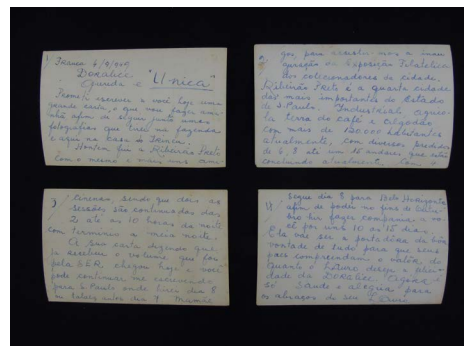 1) Franca 4/9/949
Doralice
Querida e "Unica"
escrever a você hoje uma
grande carta, o que vou fazer ama-
nhã afim de seguir junto umas
fotografias que tirei na fazenda
e aqui na casa de Franca.
Hontem fui a Ribeirão Preto
com o mesmo e mais uns ami-
2)
gos, para assistir-mos a inau-
guração da Exposição Filatelica
dos colecionadores da cidade.
Ribeirão Preto é a quarta cidade
das mais importantes do Estado
de S. Paulo.
la terra do café e algodão
com mais de 120.000 habitantes
atualmente, com diversos predios
de 6, 8 até um 15 andares que estão
construindo atualmente. Com 5
3) cinemas, sendo que dois as
sessões são continuadas das
2 até as 10 horas da noite
com terminus a meia noite.
A sua carta dizendo que
já recebeu o volume que foi
pela chegou hoje e você
pode continuar me escrevendo
para S. Paulo onde dia 8
ou talvez antes dia 7. Mamãe
4) segue dia 8 para Belo Horizonte
afim de poder no fim de
bro lhe fazer companhia a vo-
cê por uns 10 ou 15 dias.
Ela vai ser a portadôra da bôa
vontade de tudo para que seus
paes compreendam o valôr de
quanto o Lotuno deseja a felici-
dade da Doralice
só. Saude e alegrias para
os abraços do seu